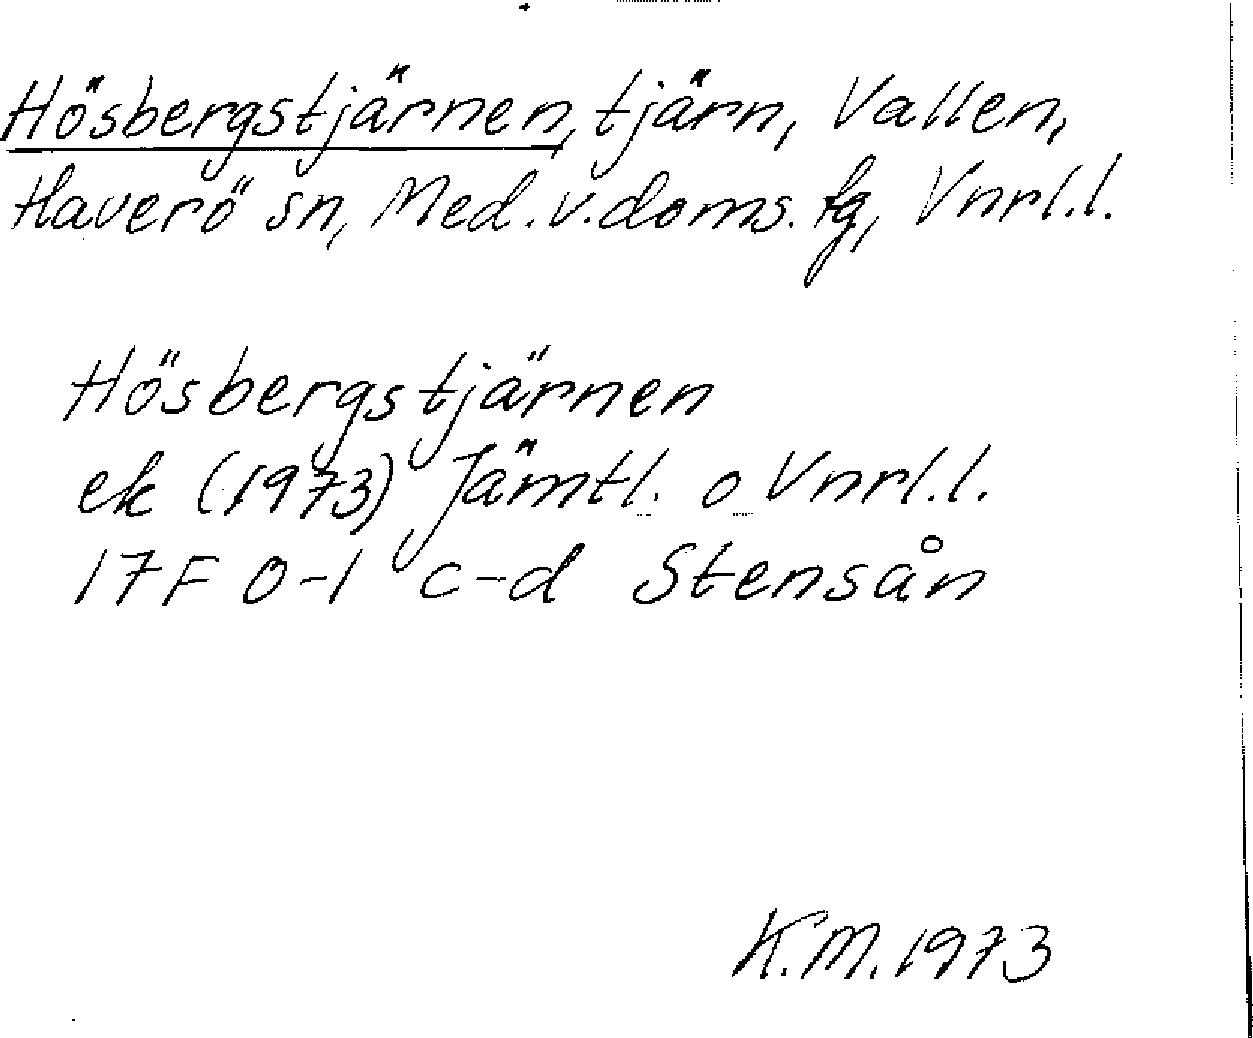 Hösbergstjärnen, tjärn, Vallen,
Haverö sn, Med.v.doms.fg, Vnrl.l.
Hösbergstjärnen
ek (1973) Jämtl. o Vnrl.l.
17F 0-1 c-d Stensån
K.M. 1973